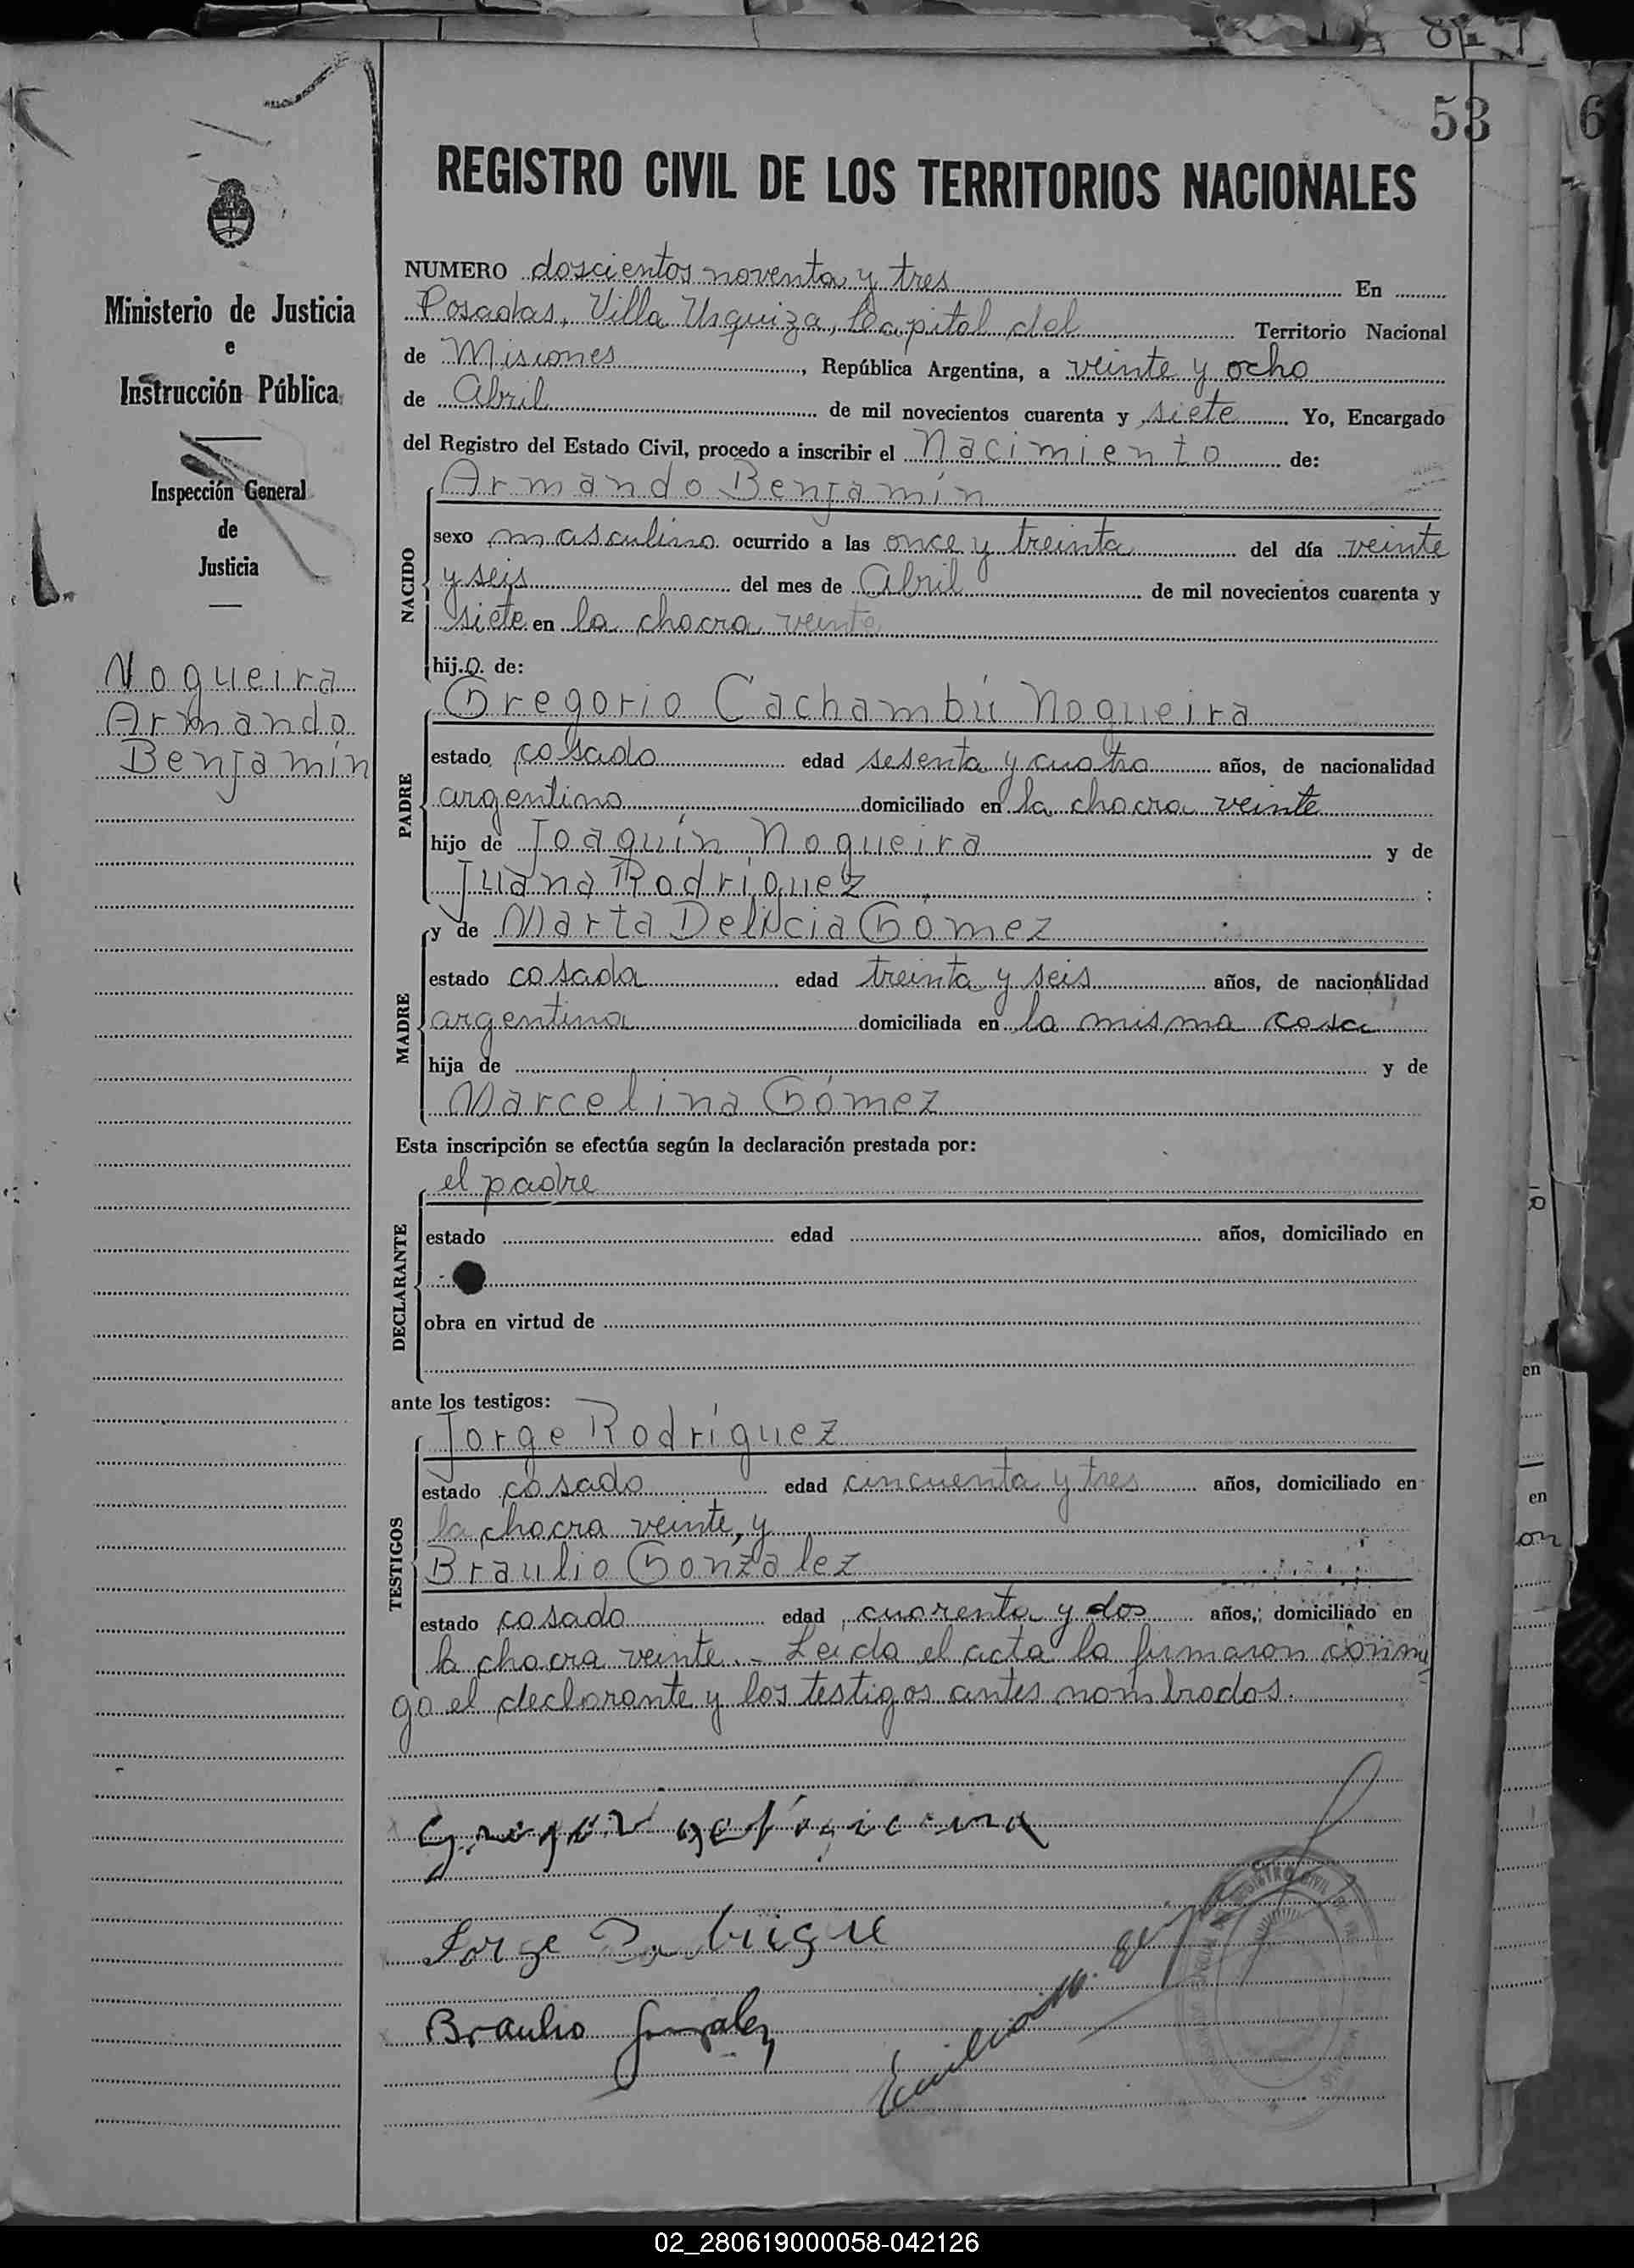 53
REGISTRO CIVIL DE LOS TERRITORIOS NACIONALES
Ministerio de Justicia
e
Instrucción Pública
Inspección General
de
Justicia
Nogueira
Armando
Benjamín
NUMERO doscientos noventa y tres En
Posadas, Villa Urquiza, Capital del Territorio Nacional
de Misiones, República Argentina, a veinte y ocho
de Abril de mil novecientos cuarenta y siete Yo, Encargado
del Registro del Estado Civil, procedo a inscribir el Nacimiento de:
NACIDO
Armando Benjamín
sexo masculino ocurrido a las once y treinta del día veinte
y seis del mes de Abril de mil novecientos cuarenta y
siete en la chacra veinte
hijo de:
PADRE
Gregorio Cachambú Nogueira
estado casado edad sesenta y cuatro años, de nacionalidad
argentino domiciliado en la chacra veinte
hijo de Joaquín Nogueira y de
Juana Rodríguez :
MADRE
y de Marta Delicia Gómez
estado casada edad treinta y seis años, de nacionalidad
argentina domiciliada en la misma casa
hija de y de
Marcelina Gómez
Esta inscripción se efectúa según la declaración prestada por:
DECLARANTE
el padre
estado edad años, domiciliado en
obra en virtud de
ante los testigos:
TESTIGOS
Jorge Rodríguez
estado casado edad cincuenta y tres años, domiciliado en
la chacra veinte, y
Braulio González
estado casado edad cuarenta y dos años, domiciliado en
la chacra veinte.- Leida el acta la firmaron conmi
go el declarante y los testigos antes nombrados.
Jorge
Braulio Gonzalez
02_280619000058-042126